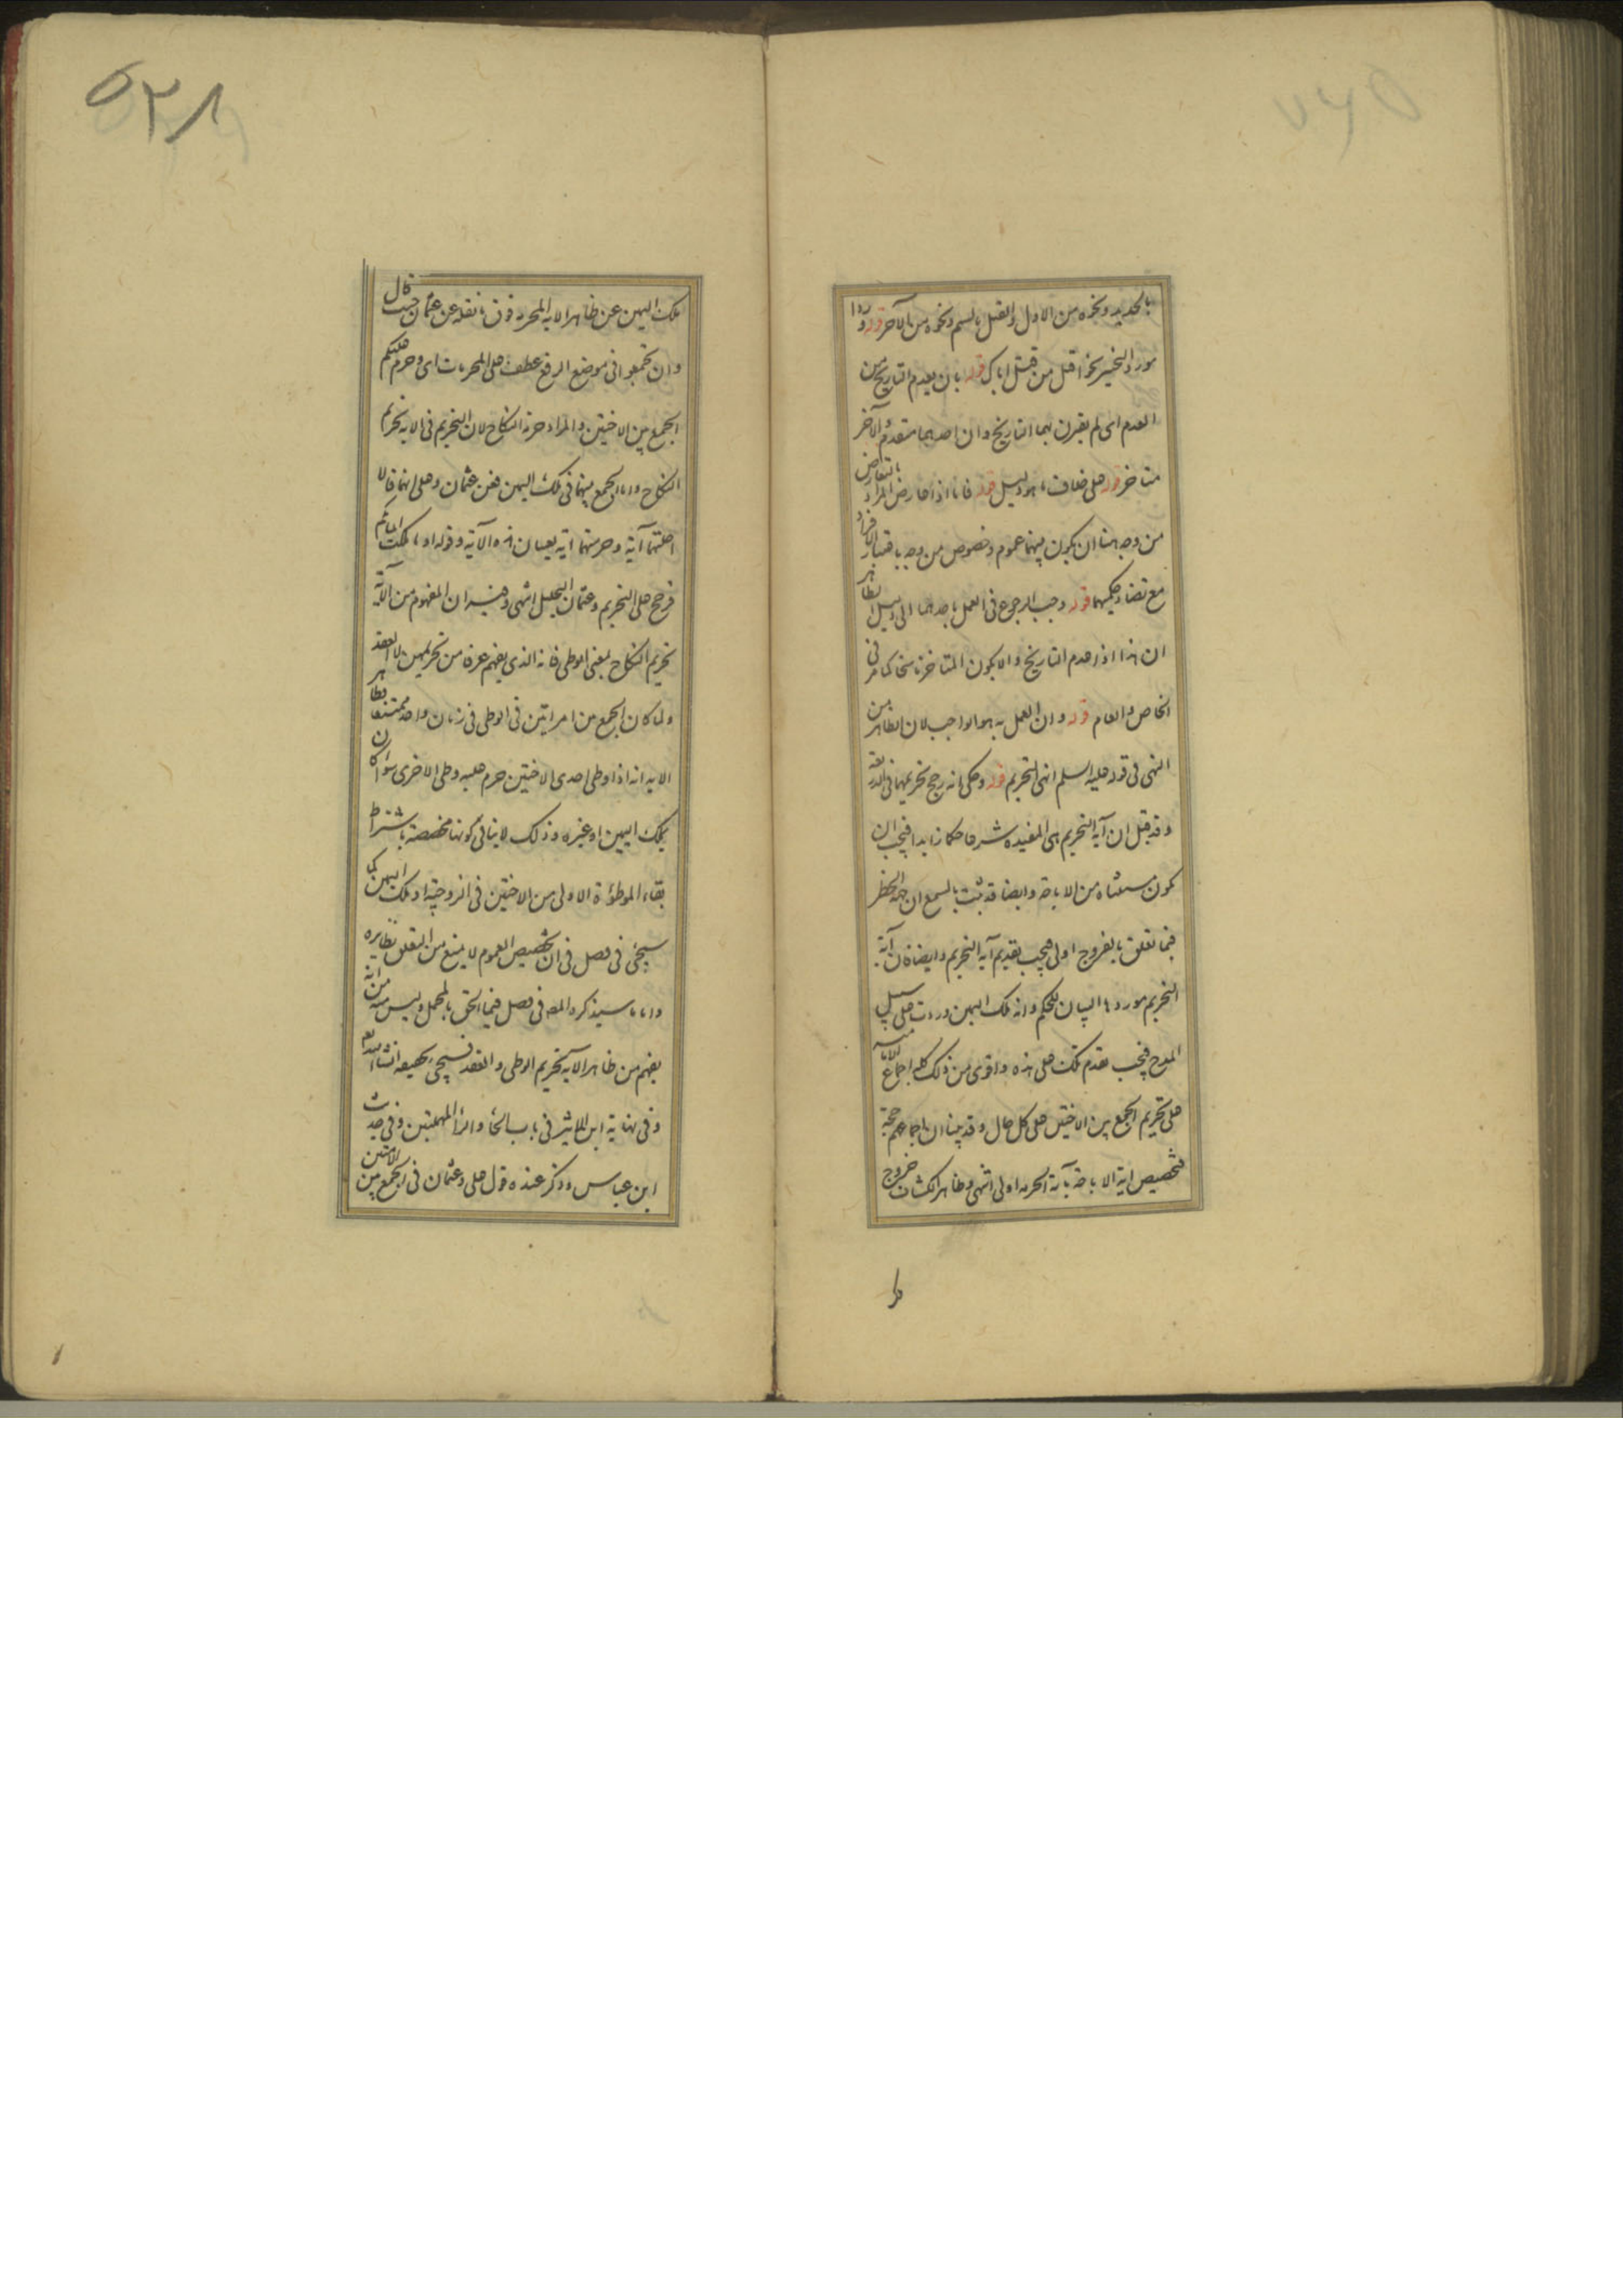 بالحديد ونحوه من الاول والقتل بالسم ونحوه من الآخر قوله وردا
مورد التخيير نحو اقتل من قتل اباك قوله بان يعدم التاريخ من
العدم اى لم يقترن بهما التاريخ وان احدهما متقدم والآخر
متاخر قوله على خلاف ما هو دليل قوله فاما اذا تعارضا المراد بالتعارض
من وجه هنا ان يكون بينهما عموم وخصوص من وجه باعتبار الافراد
مع تضاد حكميهما قوله وجب الرجوع فى العمل باحدهما الى دليل الظاهر
ان هذا اذا عدم التاريخ والا يكون المتاخر ناسخا كما مر فى
الخاص والعام قوله وان العمل به هو الواجب لان الظاهر من
النهى فى قوله عليه السلم انهى التحريم قوله وحكى انه رجح تحريمهما فى الذريعة
وقد قيل ان آية التحريم هى المفيدة شرعا حكما زايدا فيجب ان
يكون مستثناه من الاباحة وايضا قد ثبت بالسمع ان جهة الحظر
فيما تعلق بالفروج اولى فيجب تقديم آية التحريم وايضا فان آية
التحريم موردها البيان للحكم وآية ملك اليمين وردت على سبيل
المدح فيجب تقدم تلك على هذه واقوى من ذلك كله اجماع الامامية
على تحريم الجمع بين الاختين على كل حال وقد بينا ان اجماعهم حجة
فتخصيص آية الاباحة بآية الحرمة اولى انتهى وظاهر الكشاف خروج
ملك اليمين عن ظاهر الآية المحرمة فوق ما نقله عن عثمان حيث قال
وان تجمعوا فى موضع الرفع عطف على المحرمات اى وحرم عليكم
الجمع بين الاختين والمراد حرمة النكاح لان التحريم فى الآية تحريم
النكاح واما الجمع بينهما فى ملك اليمين فعن عثمان وعلى انهما قالا
احلتهما آية وحرمتهما آية يعنيان هذه الآية وقوله او ما ملكت ايمانكم
فرجح على التحريم وعثمان التحليل انتهى وفيه ان المفهوم من الآية
تحريم النكاح بمعنى الوطى فانه الذى يفهم عرفا من تحريمهن لا العقد
ولما كان الجمع من امراتين فى الوطى فى زمان واحد ممتنعا فظاهر
الآية انه اذا وطى احدى الاختين حرم عليه وطى الاخرى سواء كان
بملك اليمين او غيره وذلك لا ينافى كونها مخصصة باشتراط
بقاء الموطوءة الاولى من الاختين فى الزوجية او ملك اليمين كما
سيجئ فى فصل فى ان تخصيص العموم لا يمنع من التعلق بظاهره
واما ما سيذكره المص فى فصل فيما الحق بالمجمل وليس منه من انه
يفهم من ظاهر الآية تحريم الوطى والعقد فسيجئ تحقيقه انشاء الله
وفى نهاية ابن الاثير فى باب الحاء والراء المهملتين وفى حديث
ابن عباس وذكر عنده قول على وعثمان فى الجمع بين الامتين